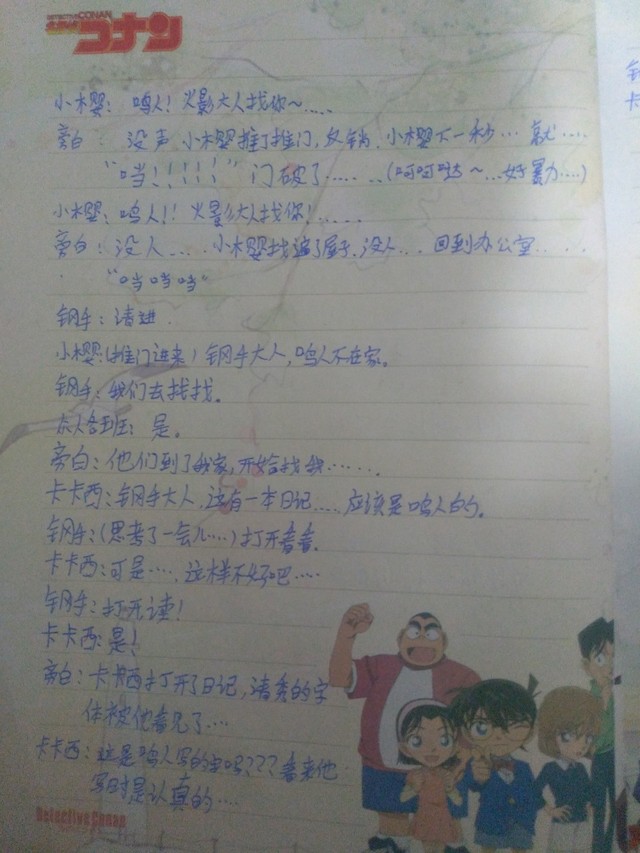 DETECTIVE CONAN
名探偵
コナン
小樱：鸣人！火影大人找你~......
旁白：没声 小樱推了推门，反锁，小樱下一秒… 就……
“啪！！！！！”门破了……..(呵呵哒~…好暴力…)
小樱：鸣人！！火影大人找你！……
旁白：没人…. 小樱找遍了屋子，没人…. 回到办公室……
“当当当”
钢手：请进.
小樱：(推门进来)钢手大人，鸣人不在家。
钢手：我们去找找。
卡卡西班：是。
旁白：他们到了我家，开始找我……
卡卡西：钢手大人，这有一本日记…..应该是鸣人的。
钢手：(思考了一会儿…)打开看看.
卡卡西：可是….这样不好吧….
钢手：打开读！
卡卡西：是！
旁白：卡卡西打开了日记，清秀的字
体被他看见了….
卡卡西：这是鸣人写的字吗???看来他
写时是认真的….
Detective Conan
钢
卡